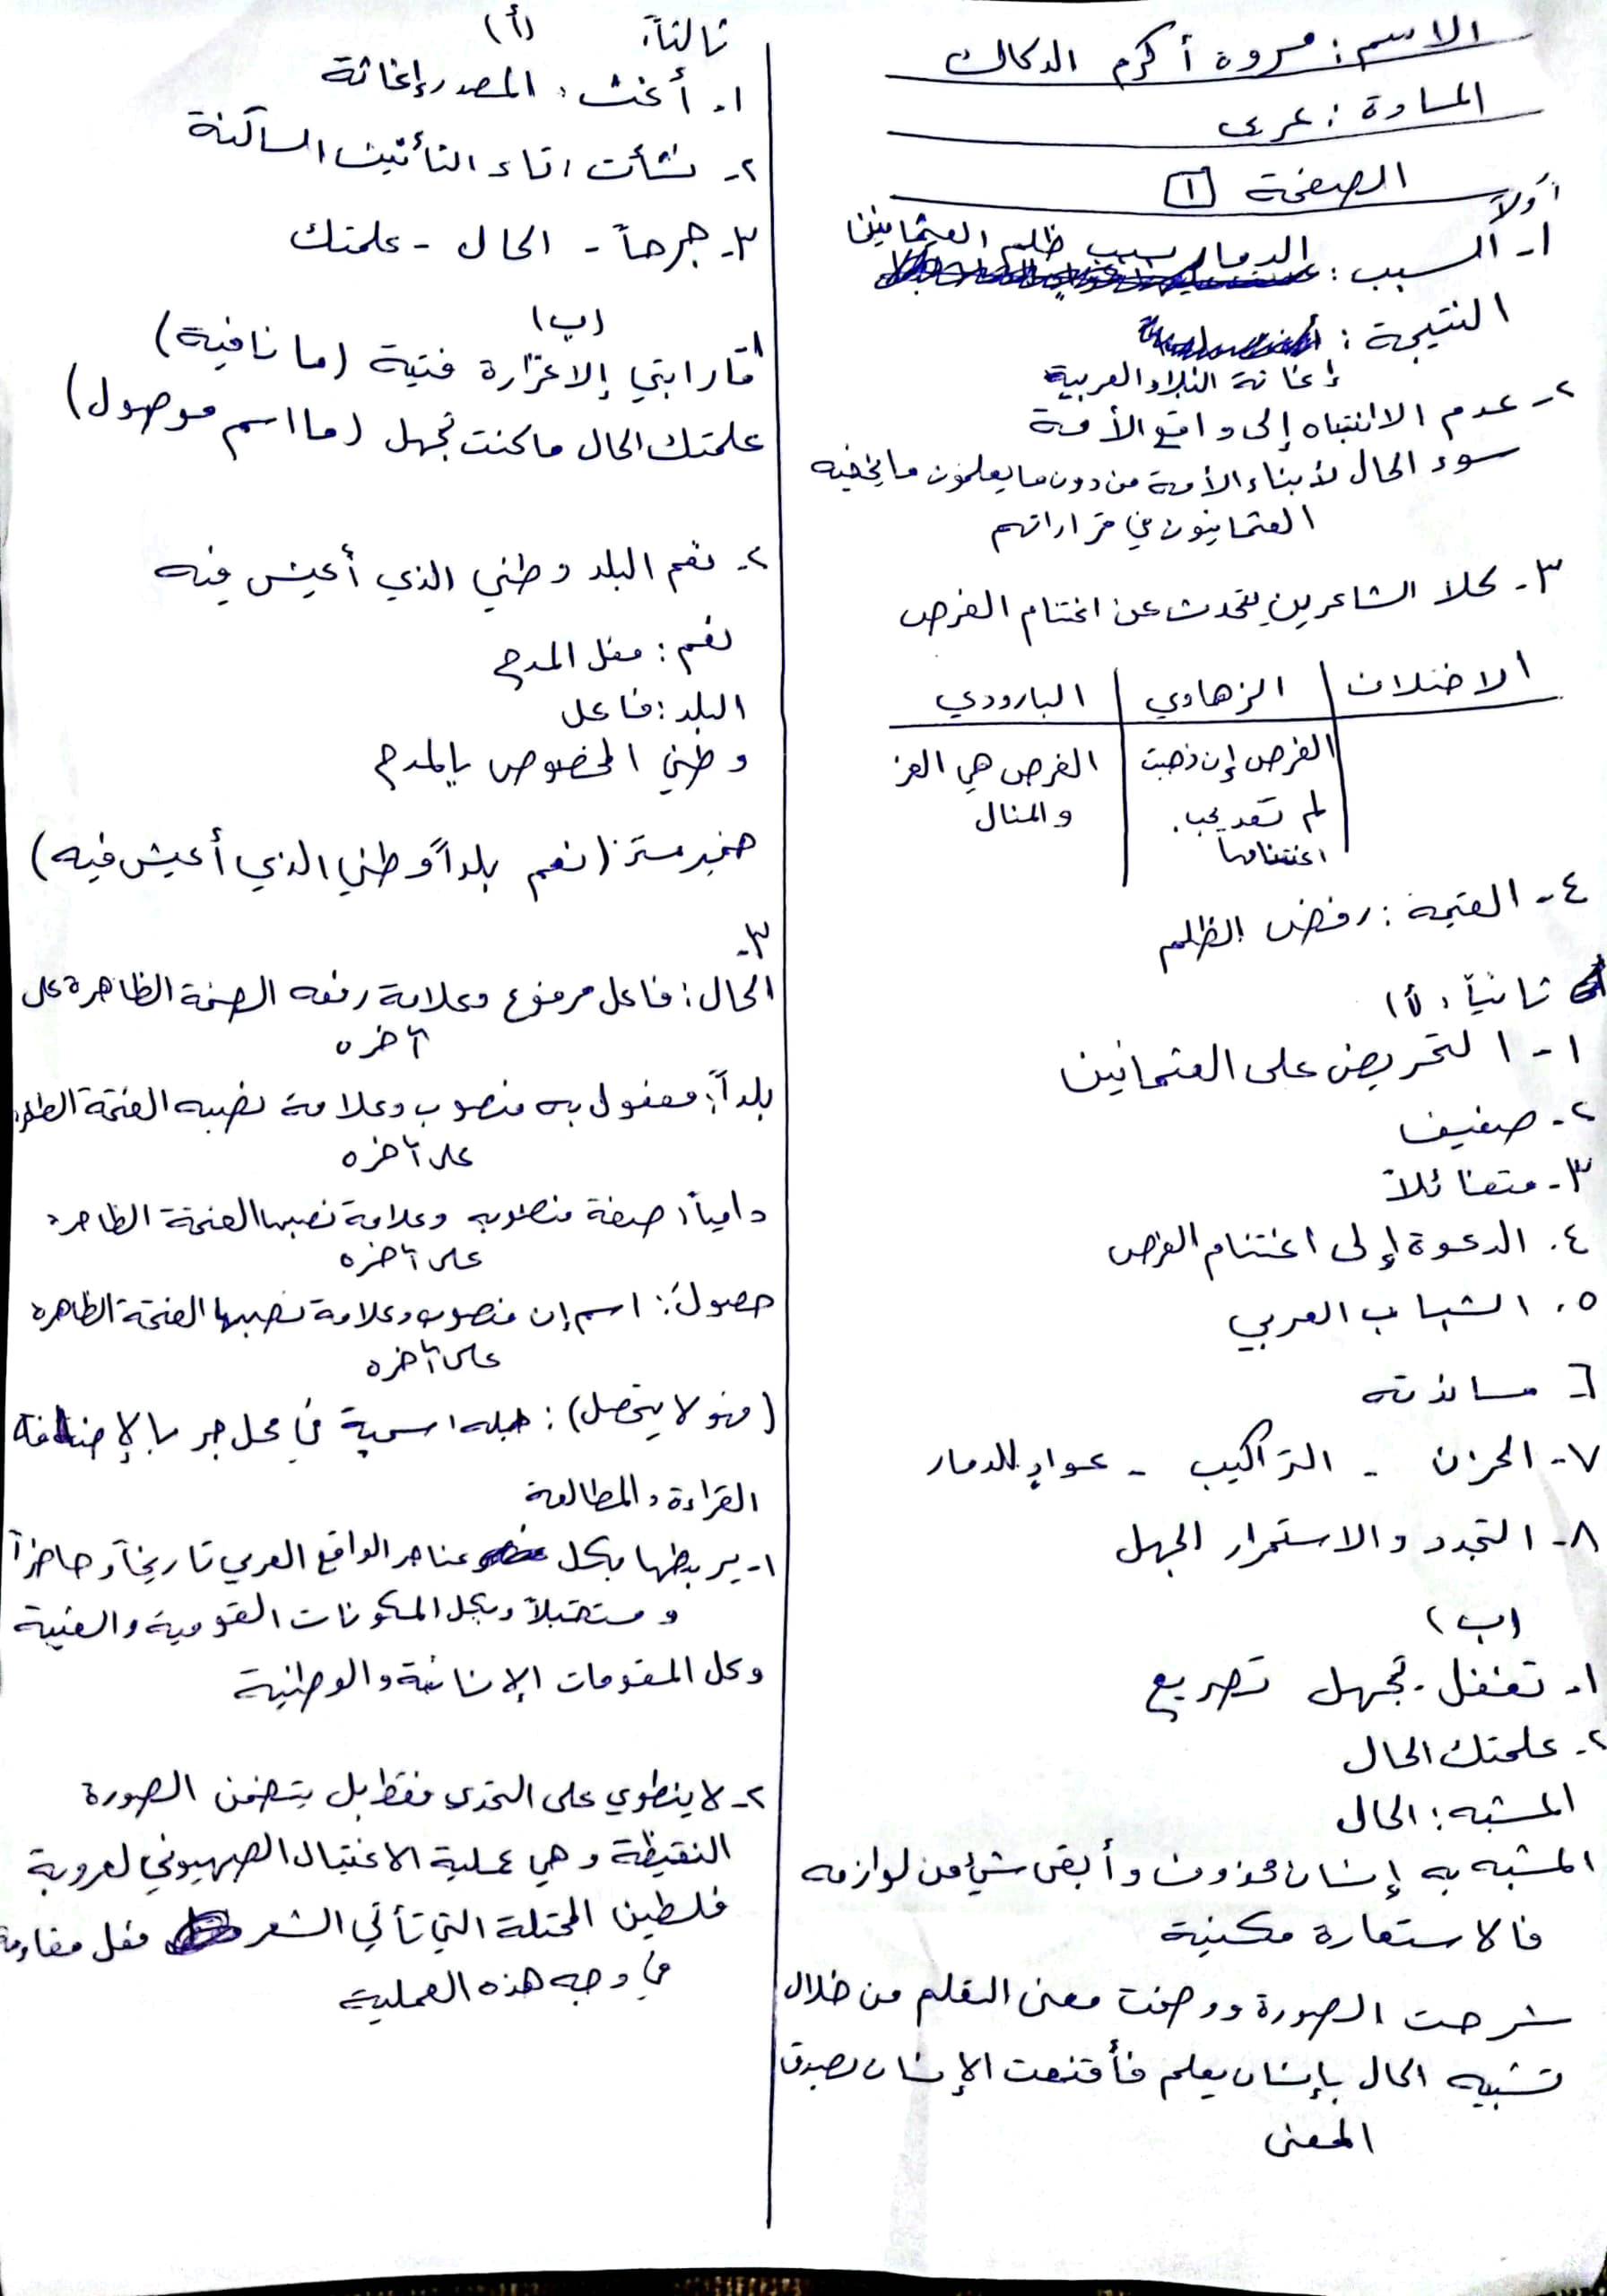 الاسم: مروة أكرم الدكاك
المادة: عربي
الصفحة ١
أولاً
١- السبب: الدمار بسبب ظلم العثمانيين
النتيجة:
إغاثة البلاد العربية
٢- عدم الانتباه إلى واقع الأمة
سوء الحال لأبناء الأمة من دون ما يعلمون ما يخفيه
العثمانيون في قراراتهم
٣- كلا الشاعرين يتحدث عن اغتنام الفرص
الاختلاف | الزهاوي | البارودي
الفرص إن ذهبت | الفرص هي العز
لم تعد يجب | والمنال
اغتنامها
٤- القيمة: رفض الظلم
ثانياً: (أ)
١- التحريض على العثمانيين
٢- ضعيف
٣- متفائلاً
٤. الدعوة إلى اغتنام الفرص
٥. الشباب العربي
٦ مساندته
٧- الحزن - التراكيب - عوادٍ للدمار
٨- التجدد والاستمرار الجهل
(ب)
١- تغفل - تجهل تصريع
٢- علمتك الحال
المشبه: الحال
المشبه به إنسان محذوف وأبقى شيئ من لوازمه
فالاستعارة مكنية
شرحت الصورة ووضحت معنى التعلم من خلال
تشبيه الحال بإنسان يعلم فأقنعت الإنسان بصدق
المعنى
ثالثاً: (أ)
١- أغث: المصدر إغاثة
٢- نشأت: تاء التأنيث الساكنة
٣- جرحاً - الحال - علمتك
(ب)
١ما رابني إلا غرارة فتية (ما نافية)
علمتك الحال ما كنت تجهل (ما اسم موصول)
٢- نعم البلد وطني الذي أعيش فيه
نعم: فعل المدح
البلد: فاعل
وطني المخصوص بالمدح
ضمير مستتر: (نعم بلداً وطني الذي أعيش فيه)
٣-
الحال: فاعل مرفوع وعلامة رفعه الضمة الظاهرة على
آخره
بلداً: مفعول به منصوب وعلامة نصبه الفتحة الظاهرة
على آخره
دامياً: صفة منصوبه وعلامة نصبها الفتحة الظاهرة
على آخره
حصولَ: اسم إن منصوب وعلامة نصبها الفتحة الظاهرة
على آخره
(فهو لا يتحصل): جملة اسمية في محل جر بالإضافة
القراءة والمطالعة
١- يربطها بكل عناصر الواقع العربي تاريخاً وحاضراً
ومستقبلاً وبكل المكونات القومية والفنية
وكل المقومات الإنسانية والوطنية
٢- لا ينطوي على التحدي فقط بل يتضمن الصورة
النقيظة وهي عملية الاغتيال الصهيوني لعروبة
فلسطين المحتلة التي تأتي الشعر فعل مقاومة
في وجه هذه العملية